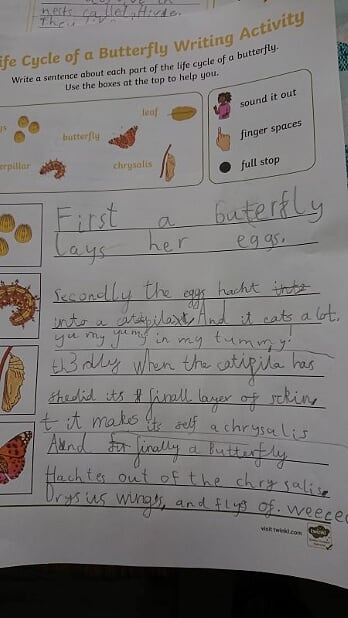 nests called
They
ife Cycle of a Butterfly Writing Activity
Write a sentence about each part of the life cycle of a butterfly.
Use the boxes at the top to help you.
gs
butterfly
leaf
erpillar
chrysalis
sound it out
finger spaces
full stop
First a buterfly
lays her eggs.
Secondly the eggs hacht into
into a And it eats a lot.
yu my yumy in my tummy!
th3rdly when the catipila has
shedid its finall layer of sckin
t it makes its self a chrysalis
And finally a butterfly
Hachtes out of the chrysalise
Drys ius wings, and flys of. weecee
visit twinkl.com
twinkl